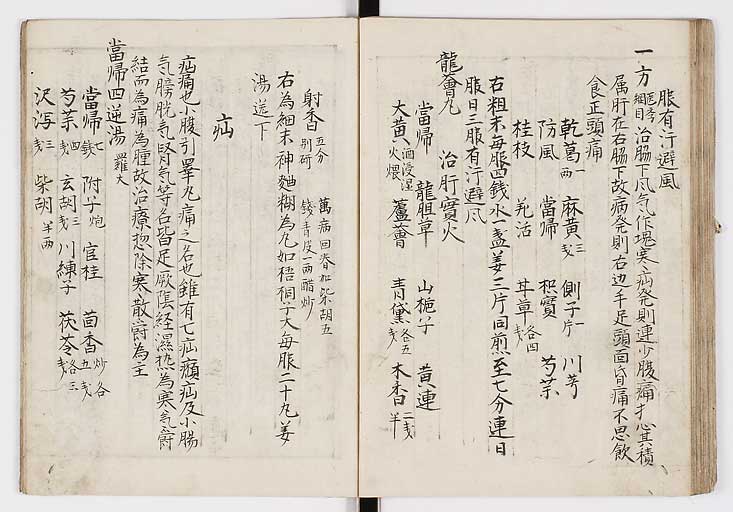 服有汗避風
一方 医学綱目 治脇下风气作塊寒疝発則連少腹痛扌心其積
属肝在右脇下故病発則右边手足頭面昏痛不思飲
食正頭痛
乾葛一両 麻黄三戋 側子一片 川芎
防風 當帰 枳實 芍薬
桂枝 羌活 甘草各四戋
右粗末每服四錢水一盞姜三片同煎至七分連日
服日三服有汗避风
龍薈丸 治肝實火
當帰 龍胆草 山梔子 黄連
大黄酒浸湿火煨 蘆薈 青黛各五戋 木香二戋半
射香五分別研 萬病回春加柴胡五錢青皮一両醋炒
右為細末神麯糊為丸如梧桐子大每服二十丸姜
湯送下
疝
疝痛也小腹引睪丸痛之名也雖有七疝㿗疝及小腸
气膀胱气腎气等名皆足厥陰経湿热為寒气欝
結而為痛為腫故治療惣除寒散欝為主
當帰四逆湯 羅太
當帰七錢 附子炮 官桂 茴香炒各五戋
芍薬四戋 玄胡三戋 川練子 茯苓各三戋
沢泻三戋 柴胡半両